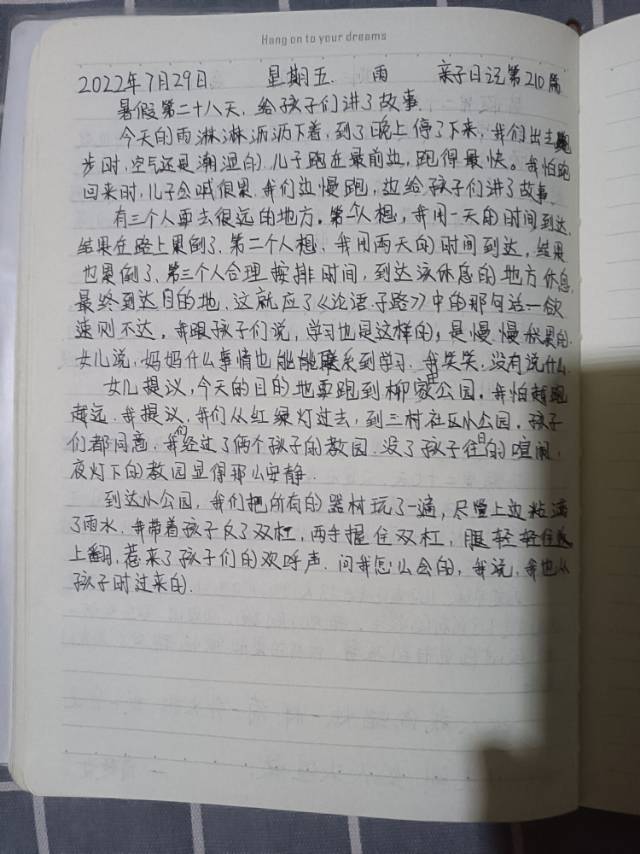 Hang on to your dreams
2022年7月29日 星期五 雨 亲子日记第210篇
暑假第二十八天,给孩子们讲了故事.
今天的雨淋淋沥沥下着,到了晚上停了下来,我们出去跑
步时,空气还是潮湿的.儿子跑在最前边,跑得最快。我怕跑
回来时,儿子会喊很累.我们边慢跑,边给孩子们讲了故事.
有三个人要去很远的地方。第一个人想,我用一天的时间到达,
结果在路上累倒了.第二个人想,我用两天的时间到达,结果
也累倒了.第三个人合理按排时间,到达该休息的地方休息,
最终到达目的地.这就应了《论语子路》中的那句话一欲
速则不达。我跟孩子们说,学习也是这样的,是慢慢积累的.
女儿说,妈妈什么事情也能能联系到学习.我笑笑,没有说什么.
女儿提议,今天的目的地要跑到柳家公园。我怕越跑
越远.我提议,我们从红绿灯过去,到三村社区小公园。孩子
们都同意.我们经过了俩个孩子的教园.没了孩子往日的喧闹,
夜灯下的教园显得那么安静.
到达小公园,我们把所有的器材玩了一遍,尽管上边粘满
了雨水.我带着孩子反了双杠,两手握住双杠,腿轻轻往
上翻,惹来了孩子们的欢呼声.问我怎么会的,我说,我也从
孩子时过来的.